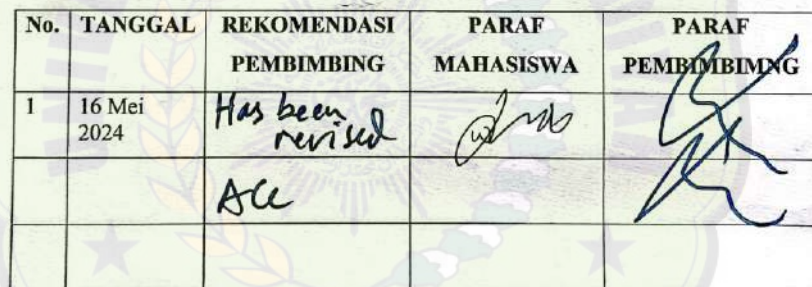 No. TANGGAL REKOMENDASI PEMBIMBING PARAF MAHASISWA PARAF PEMBIMBIMNG
1 16 Mei 2024 Has been revised
Acc